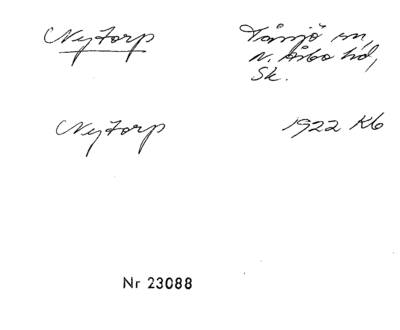 Nytorp
Tåssjö sn,
N. Åsbo hd,
Sk.
Nytorp
1922 Kb
Nr 23088